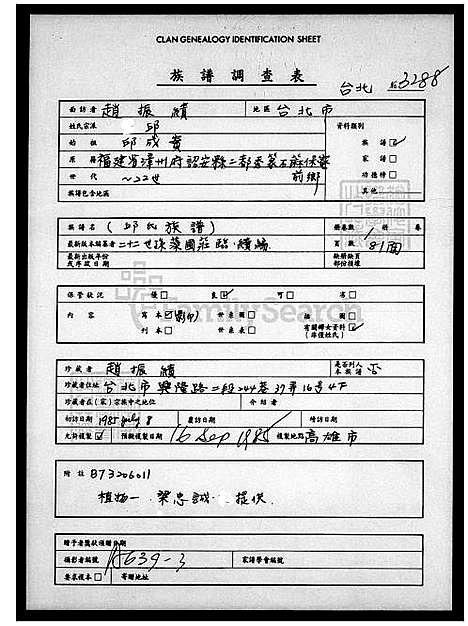 CLAN GENEALOGY IDENTIFICATION SHEET
族譜調查表
台北 3288
面訪者 趙振績 地區 台北市
姓氏宗派 邱 資料類別
始祖 邱成實 族譜☑
原籍 福建省漳州府詔安縣二都 家譜□
世代 ~22世 前鄉 功德榜□
族譜包含地區 其他
族譜名 (邱氏族譜) 冊卷數 1 冊 卷
最新版本編著者 二十二世孫 頁數 81面
最新出版年份 缺冊缺頁
或序跋日期 部份損壞
保管狀況 優□ 良☑ 可□ 劣□
內容 寫本☑(影印) 世系圖□ 插圖□
刊本□ 世系表□ 有關婦女資料☑
(非僅姓氏)
FamilySearch
珍藏者 趙振績 是否列入本族譜 否
珍藏者住址 台北市興隆路二段244巷37弄16號4F
珍藏者在(家)宗族中之地位 介紹者
初訪日期 1985 July 8 復訪日期 終訪日期
允許複製☑ 預擬複製日期 16 Sep 1985 複製地點 高雄市
附註 873206011
植物一 梁忠誠 提供
贈予者獎狀頒贈日期
攝影者編號 A639-3 家譜學會編號
要求複本□ 寄贈地址